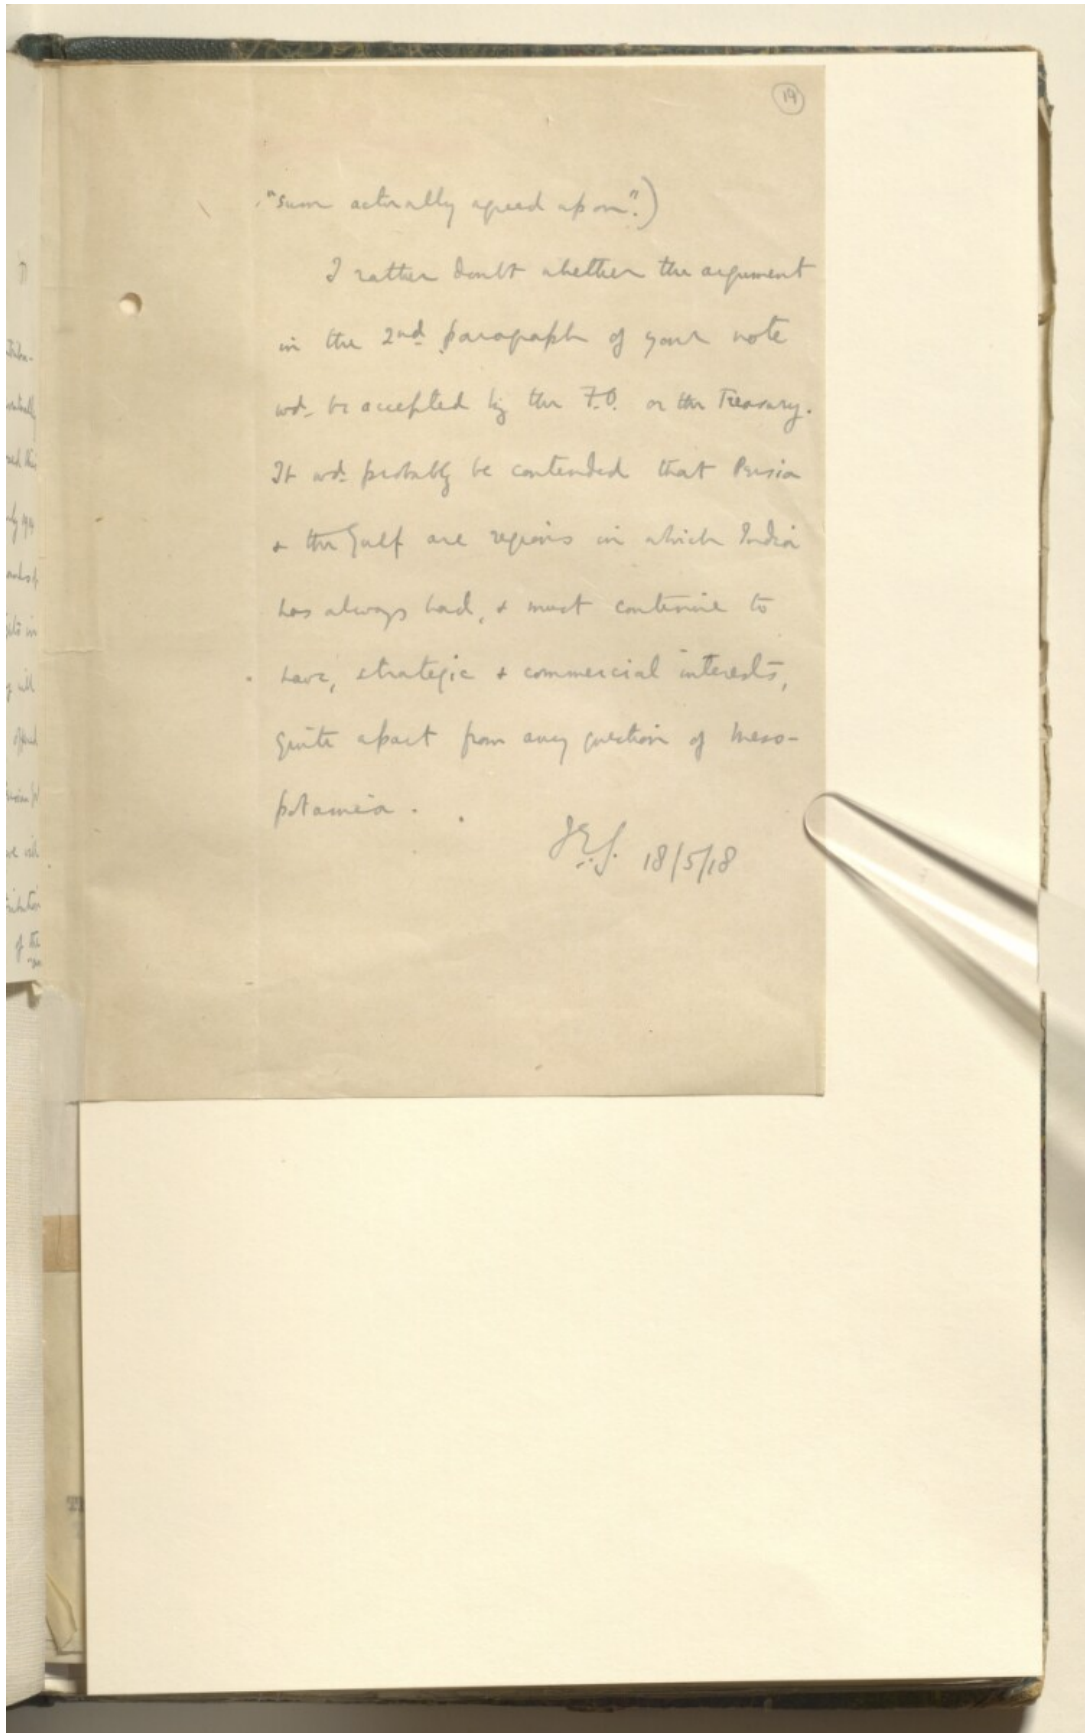 19
"sum actually agreed upon".)
I rather doubt whether the argument
in the 2nd paragraph of your note
wd. be accepted by the F.O. or the Treasury.
It wd. probably be contended that Persia
& the Gulf are regions in which India
has always had, & must continue to
have, strategic & commercial interests,
quite apart from any question of Meso-
potamia.
J.E.S. 18/5/18